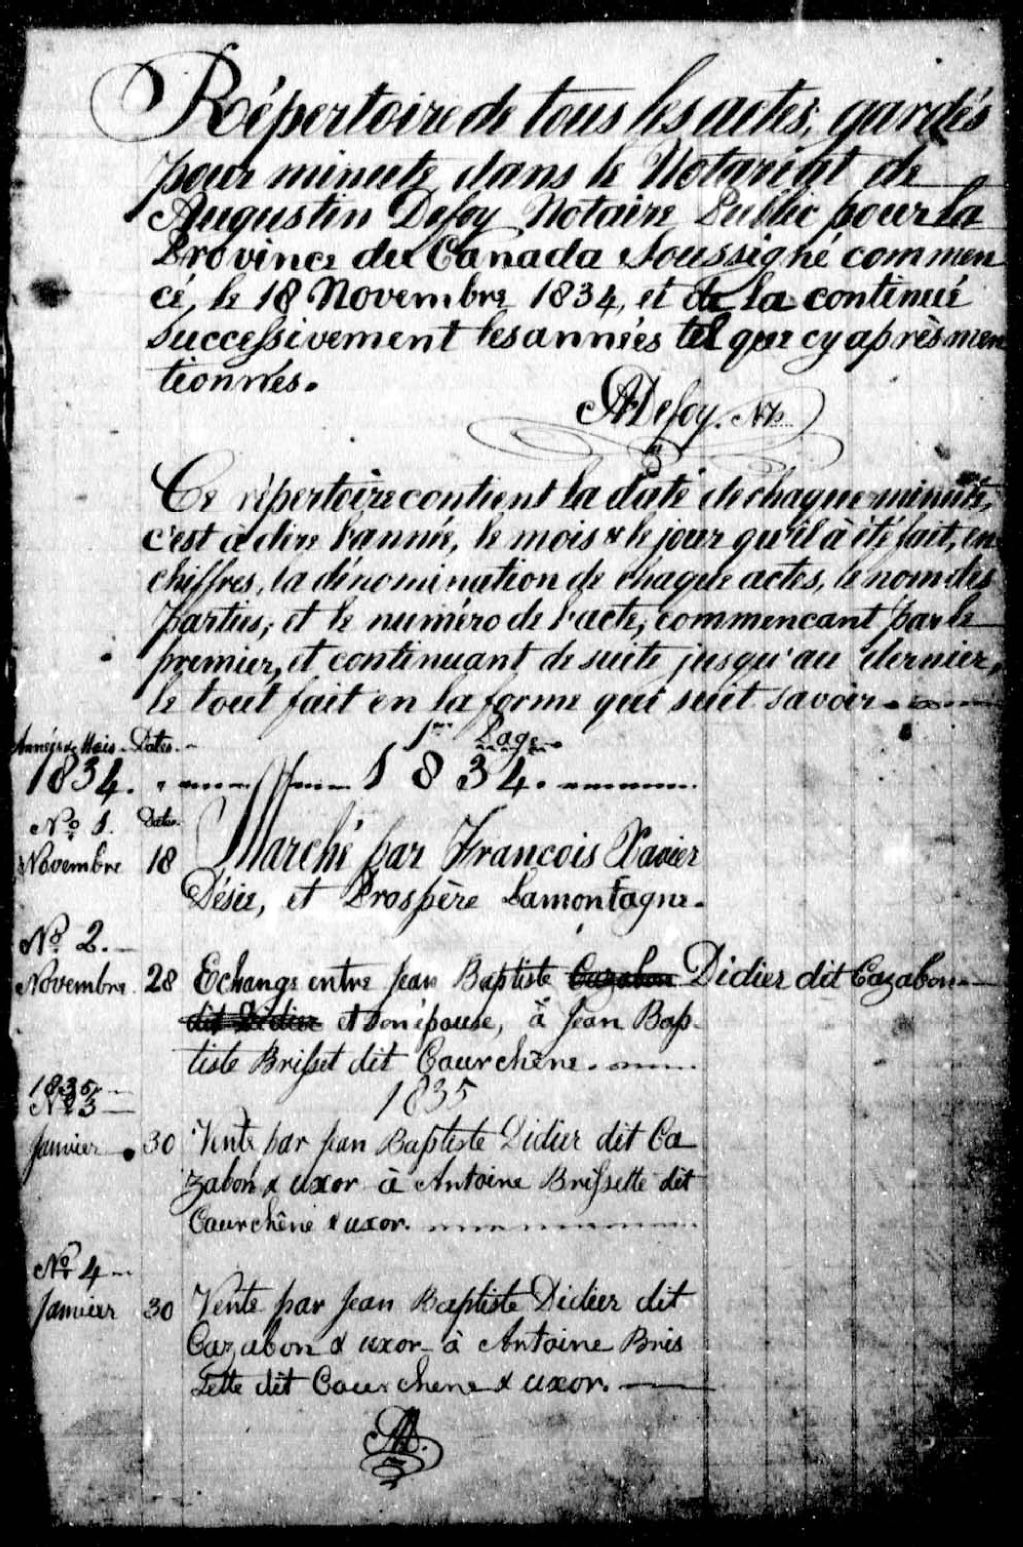 Répertoire de tous les actes, gardés
pour minute dans le Notariat de
Augustin Defoy Notaire Public pour la
Province du Canada Soussigné commen
cé, le 18 Novembre 1834, et de la continué
Successivement les années tel que cy après men
tionnées.
ADefoy. N.P.
Ce répertoire contient la date de chaque minute,
c'est à dire l'année, le mois & le jour qu'il à été fait, en
chiffres, la dénomination de chaque actes, le nom des
Parties, et le numéro de l'acte, commencant par le
premier, et continuant de suite jusqu'au dernier,
le tout fait en la forme qui suit savoir.
1re Page.
Années & Mois. Dates.
1834. 1834.
No 1. Dates.
Novembre 18 Marché par Francois Xavier
Désie, et Prospère Lamontagne.
No 2.
Novembre 28 Echange entre Jean Baptiste Cazabon Didier dit Cazabon
dit Didier et son épouse, à Jean Bap
tiste Brisset dit Courchêne.
1835 1835
No 3
Janvier 30 Vente par Jean Baptiste Didier dit Ca
zabon & uxor à Antoine Brissette dit
Courchêne & uxor.
No 4
Janvier 30 Vente par Jean Baptiste Didier dit
Cazabon & uxor à Antoine Bris
sette dit Courchene & uxor.
AD.